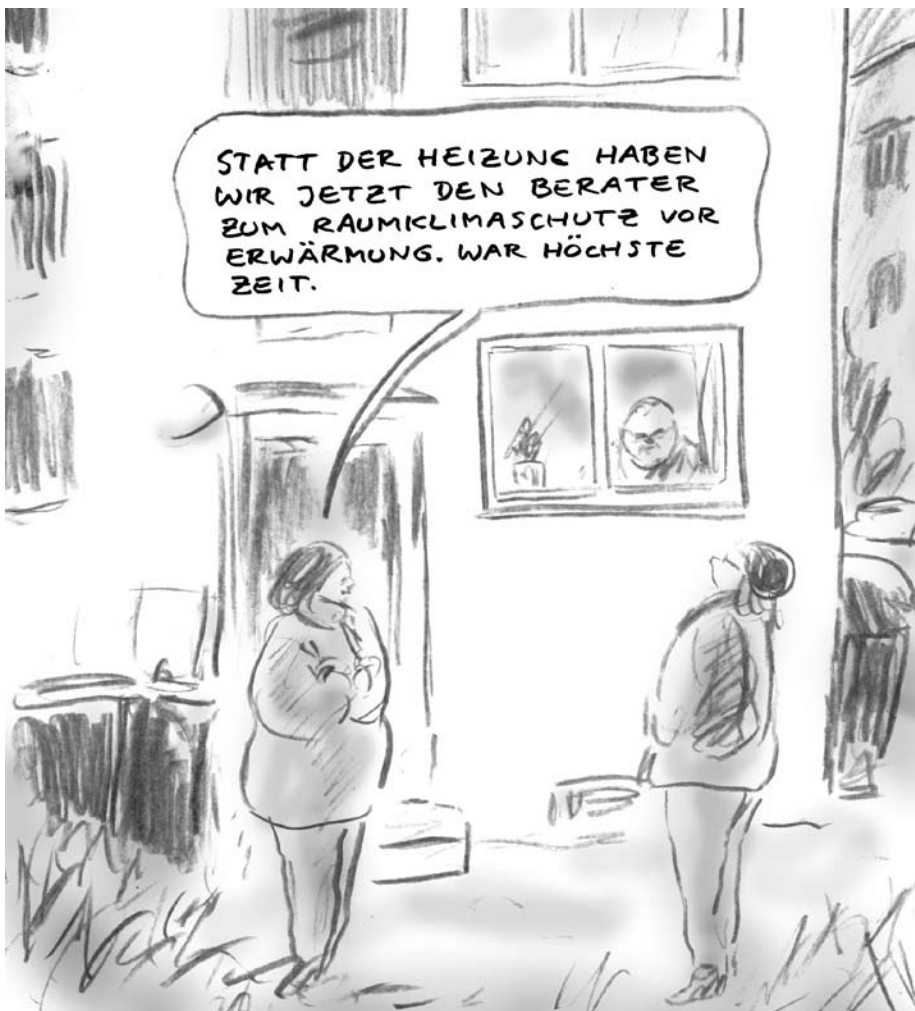 STATT DER HEIZUNG HABEN
WIR JETZT DEN BERATER
ZUM RAUMKLIMASCHUTZ VOR
ERWÄRMUNG. WAR HÖCHSTE
ZEIT.